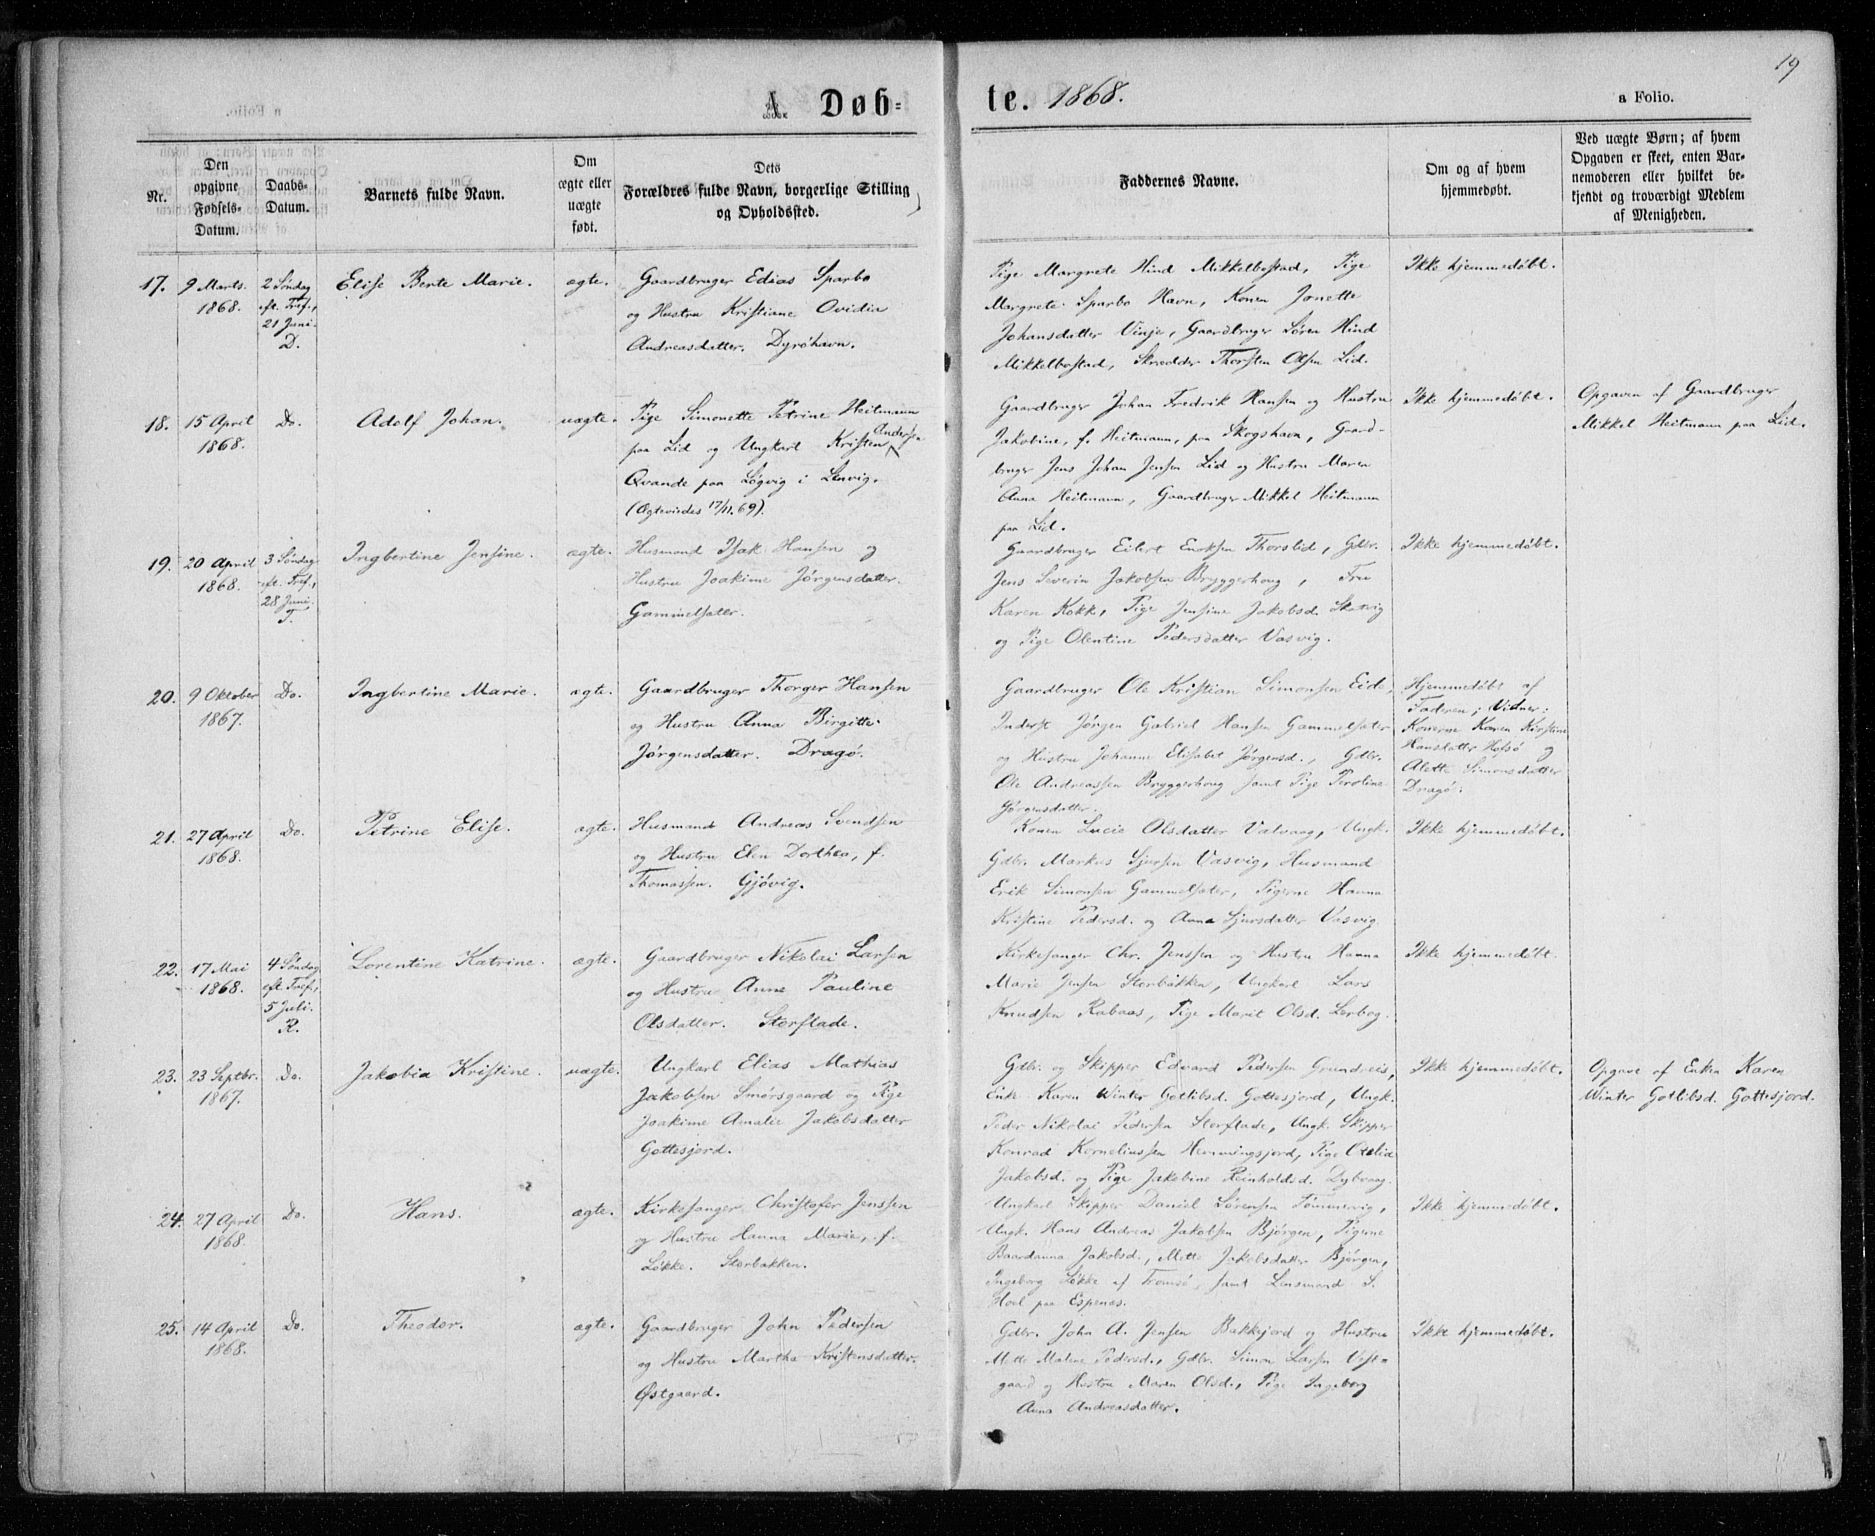 19
A. Døb= te. 1868.
a Folio.
Nr.
Den opgivne Fødsels-Datum.
Daabs-Datum.
Barnets fulde Navn.
Om ægte eller uægte født.
Dets Forældres fulde Navn, borgerlige Stilling og Opholdssted.
Faddernes Navne.
Om og af hvem hjemmedøbt.
Ved uægte Børn; af hvem Opgaven er skeet, enten Barnemoderen eller hvilket bekjendt og troværdigt Medlem af Menigheden.
17. 9 Marts 1868. 2 Søndag eft. Tref., 21 Juni. D. Elise Berte Marie. ægte.
Gaardbruger Edias Sparbo
og Hustru Kristiane Ovidia
Andreasdatter. Dyröhavn.
Pige Margrete Hind Mikkelbostad, Pige
Margrete Sparbo Havn, Konen Jonette
Johansdatter Vinje, Gaardbruger Søren Hind
Mikkelbostad, Skrædder Thorsten Olsen Lid.
Ikke hjemmedøbt.
18. 15 April 1868. Do. Adolf Johan. uægte.
Pige Simonette Petrine Heitmann
paa Lid og Ungkarl Kristen Anders.
Qvande paa Løgvig i Lenvig.
(Ægteviedes 17/11.69).
Gaardbruger Johan Fredrik Hansen og Hustru
Jakobine, f. Heitmann, paa Skogshavn, Gaard-
bruger Jens Johan Jensen Lid og Hustru Maren
Anna Heitmann, Gaardbruger Mikkel Heitmann
paa Lid.
Ikke hjemmedøbt.
Opgaven af Gaardbruger
Mikkel Heitmann paa Lid.
19. 20 April 1868. 3 Søndag eft. Tref., 28 Juni. T. Ingbertine Jensine. ægte.
Husmand Isak Hansen og
Hustru Joakime Jørgensdatter.
Gammelsæter.
Gaardbruger Eilert Enoksen Thorslid, Gdbr.
Jens Severin Jakobsen Bryggerhoug, Fru
Karen Kokk, Pige Jensine Jakobsd. Skatvig
og Pige Olentine Pedersdatter Vasvig.
Ikke hjemmedøbt.
20. 9 Oktober 1867. Do. Ingbertine Marie. ægte.
Gaardbruger Thorger Hansen
og Hustru Anna Birgitte
Jørgensdatter. Dragö.
Gaardbruger Ole Kristian Simonsen Eide,
Inderst Jørgen Gabriel Hansen Gammelsæter
og Hustru Johanne Elisabet Jørgensd., Gdbr.
Ole Andreassen Bryggerhoug samt Pige Peroline
Jørgensdatter.
Hjemmedøbt af
Faderen; Vidner:
Konerne Karen Kirstine
Hansdatter Hofsö og
Alette Simonsdatter
Dragö.
21. 27 April 1868. Do. Petrine Elise. ægte.
Husmand Andreas Svendsen
og Hustru Elen Dorthea, f.
Thomassen. Gjövig.
Konen Lucie Olsdatter Valvaag, Ungk.
Gdbr. Markus Sjursen Vasvig, Husmand
Erik Simonsen Gammelsæter, Pigerne Hanna
Kristine Pedersd. og Anna Sjursdatter Vasvig.
Ikke hjemmedøbt.
22. 17 Mai 1868. 4 Søndag eft. Tref., 5 Juli. R. Lorentine Katrine. ægte.
Gaardbruger Nikolai Larsen
og Hustru Anne Pauline
Olsdatter. Storflade.
Kirkesanger Chr. Jenssen og Hustru Hanna
Marie Jensen Storbakken, Ungkarl Lars
Knudsen Rabaas, Pige Marit Olsd. Lerbog.
Ikke hjemmedøbt.
23. 23 Septbr. 1867. Do. Jakobia Kristine. uægte.
Ungkarl Elias Mathias
Jakobsen Smörsgaard og Pige
Joakime Amalie Jakobsdatter
Gottesjord.
Gdbr. og Skipper Edvard Pedersen Grundreis,
Enke Karen Winter Gotlibsd. Gottesjord, Ungk.
Peder Nikolai Pedersen Storflade, Ungk. Skipper
Konrad Korneliussen Hemmingsjord, Pige Otelia
Jakobsd. og Pige Jakobine Reinholdsd. Dybvaag.
Ikke hjemmedøbt.
Opgave af Enken Karen
Winter Gotlibsd. Gottesjord.
24. 27 April 1868. Do. Hans. ægte.
Kirkesanger Christofer Jenssen
og Hustru Hanna Marie, f.
Løkke. Storbakken.
Ungkarl Skipper Daniel Sørensen Tømmervig,
Ungk. Hans Andreas Jakobsen Bjørgen, Pigerne
Baardanna Jakobsd., Mette Jakobsdatter Bjørgen,
Ingeborg Løkke af Tromsö, samt Lensmand S.
Hoel paa Espenæs.
Ikke hjemmedøbt.
25. 14 April 1868. Do. Theodor. ægte.
Gaardbruger John Pedersen
og Hustru Martha Kristensdatter.
Østgaard.
Gdbr. John A. Jensen Bakkejord og Hustru
Mette Malene Pedersd., Gdbr. Simon Larsen Vest-
gaard og Hustru Maren Olsd., Pige Ingeborg
Anna Andreasdatter.
Ikke hjemmedøbt.